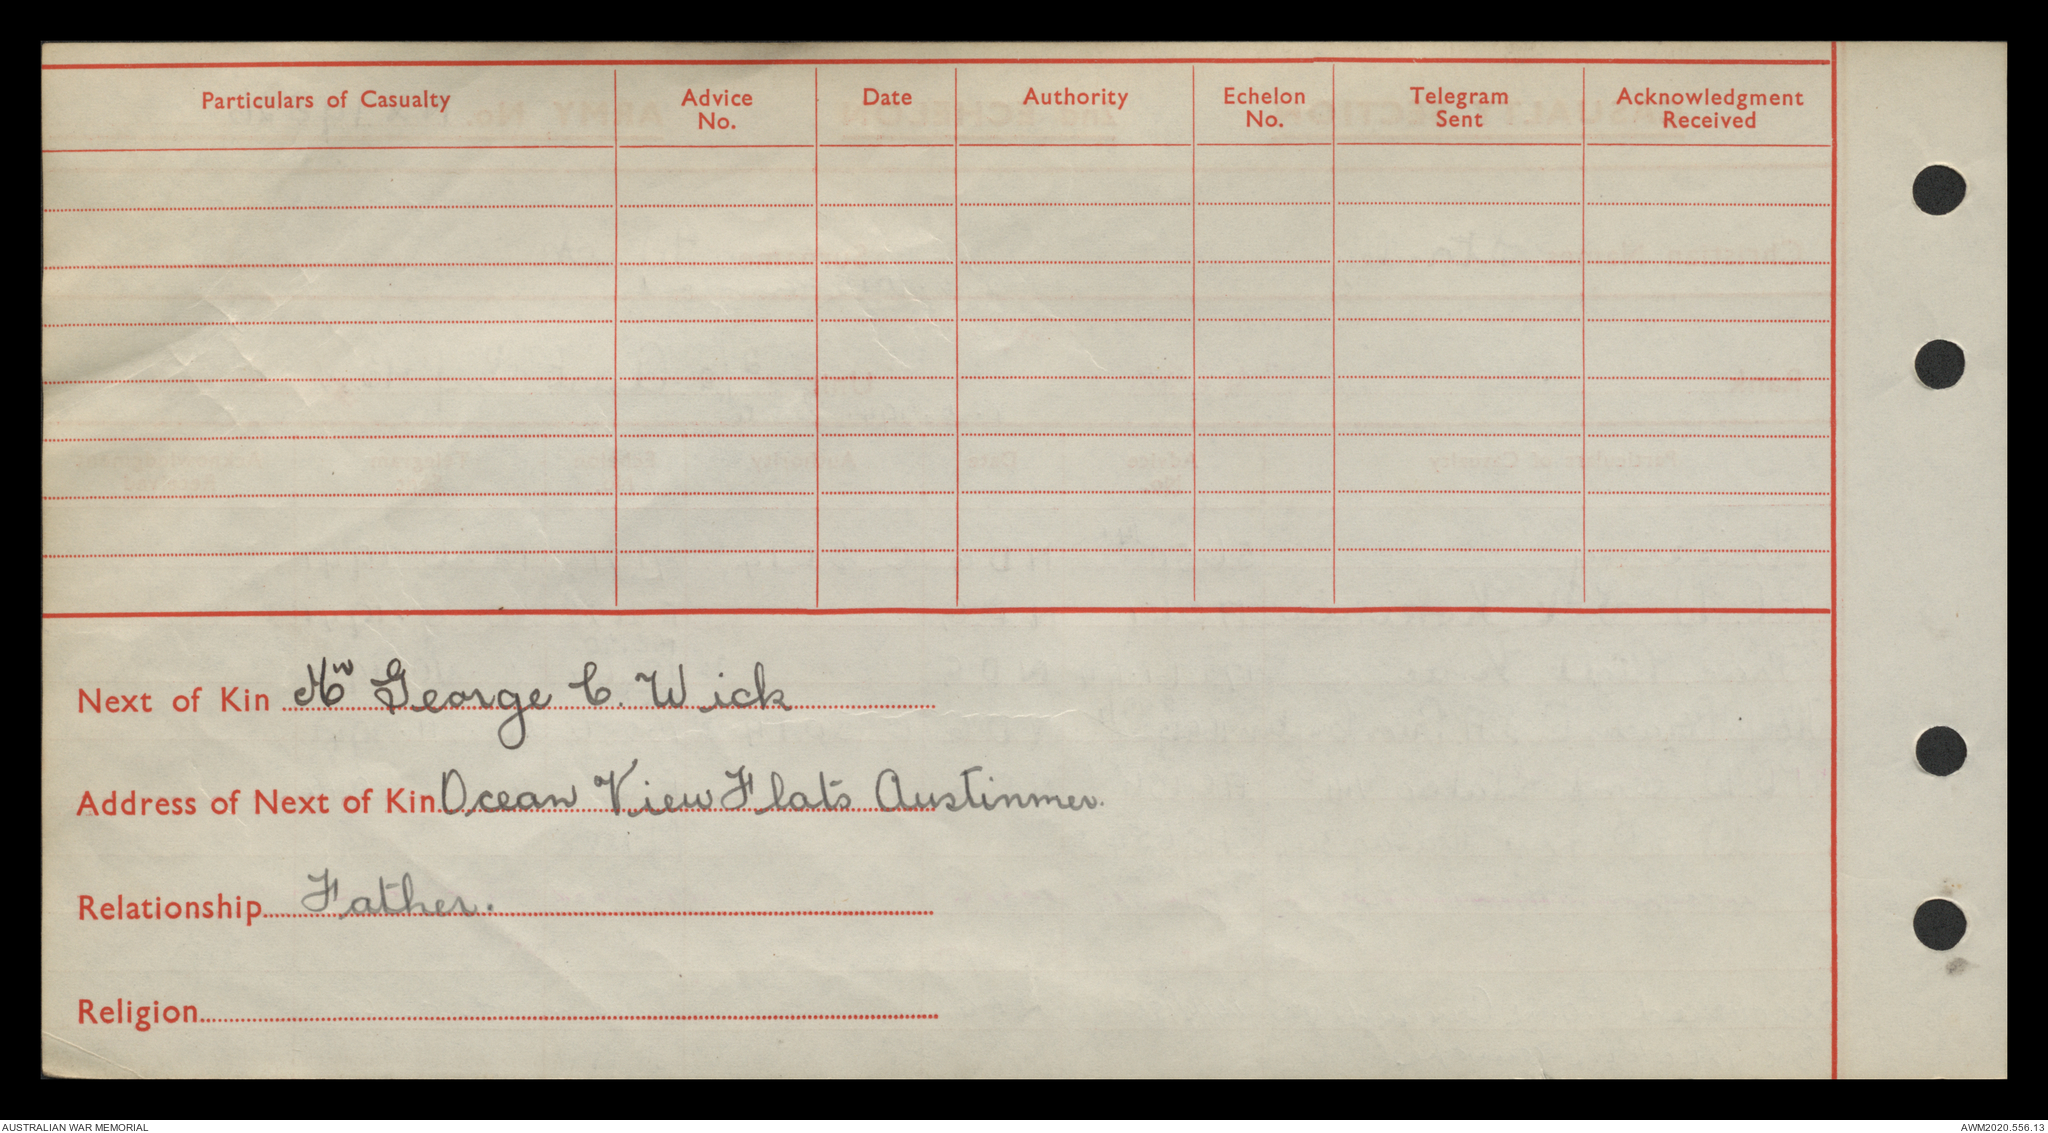 Particulars of Casualty Advice No. Date Authority Echelon No. Telegram Sent Acknowledgment Received
Next of Kin Mr George C. Wick
Address of Next of Kin Ocean View Flats Austinmer.
Relationship Father.
Religion
AUSTRALIAN WAR MEMORIAL AWM2020.556.13